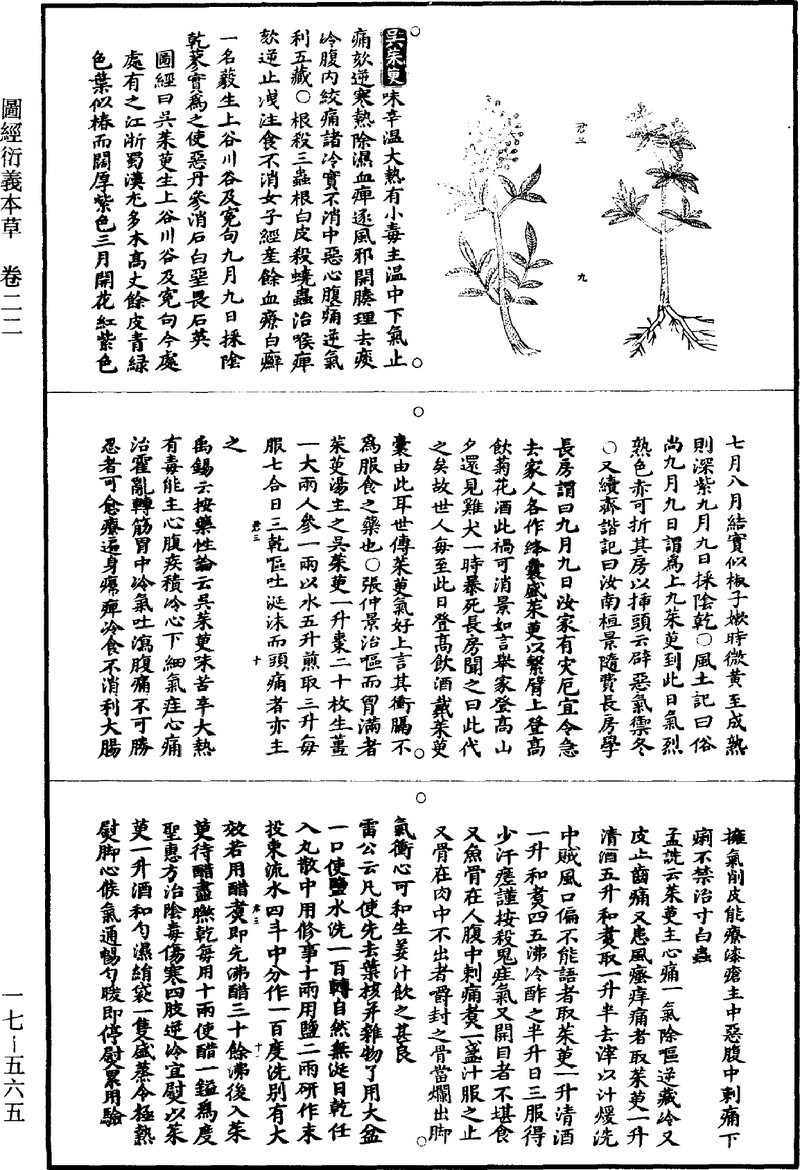 圖經衍義本草　卷二二
吳茱萸味辛溫大熱有小毒主溫中下氣止
痛欬逆寒熱除濕血痺逐風邪開腠理去痰
冷腹內絞痛諸冷實不消中惡心腹痛逆氣
利五藏○根殺三蟲根白皮殺蟯蟲治喉痺
欬逆止洩注食不消女子經產餘血療白癬
一名藙生上谷川谷及冤句九月九日採陰
乾蓼實為之使惡丹參消石白堊畏石英
圖經曰吳茱萸生上谷川谷及冤句今處
處有之江浙蜀漢尤多木高丈餘皮青綠
色葉似椿而闊厚紫色三月開花紅紫色
七月八月結實似椒子嫩時微黃至成熟
則深紫九月九日採陰乾○風土記曰俗
尚九月九日謂為上九茱萸到此日氣烈
熟色赤可折其房以插頭云辟惡氣禦冬
○又續齊諧記曰汝南桓景隨費長房學
長房謂曰九月九日汝家有灾厄宜令急
去家人各作絳囊盛茱萸以繫臂上登高
飲菊花酒此禍可消景如言舉家登高山
夕還見雞犬一時暴死長房聞之曰此代
之矣故世人每至此日登高飲酒戴茱萸
囊由此耳世傳茱萸氣好上言其衝膈不
為服食之藥也○張仲景治嘔而胃滿者
茱萸湯主之吳茱萸一升棗二十枚生薑
一大兩人參一兩以水五升煎取三升每
服七合日三乾嘔吐涎沫而頭痛者亦主
之
禹錫云按藥性論云吳茱萸味苦辛大熱
有毒能主心腹疾積冷心下細氣疰心痛
治霍亂轉筋胃中冷氣吐瀉腹痛不可勝
忍者可愈療遍身㿏痺冷食不消利大腸
擁氣削皮能療漆瘡主中惡腹中刺痛下
痢不禁治寸白蟲
孟詵云茱萸主心痛一氣除嘔逆藏冷又
皮止齒痛又患風瘙痒痛者取茱萸一升
清酒五升和煮取一升半去滓以汁煖洗
中賊風口偏不能語者取茱萸一升清酒
一升和煮四五沸冷酢之半升日三服得
少汗瘥謹按殺鬼疰氣又開目者不堪食
又魚骨在人腹中刺痛煮一盞汁服之止
又骨在肉中不出者嚼封之骨當爛出脚
氣衝心可和生姜汁飲之甚良
雷公云凡使先去葉核并雜物了用大盆
一口使鹽水洗一百轉自然無涎日乾任
入丸散中用修事十兩用鹽二兩研作末
投東流水四斗中分作一百度洗別有大
效若用醋煮即先沸醋三十餘沸後入茱
萸待醋盡㬠乾每用十兩使醋一鎰為度
聖惠方治陰毒傷寒四肢逆冷宜熨以茱
萸一升酒和勻濕絹袋一隻盛蒸令極熱
熨脚心候氣通暢勻暖即停熨累用驗
一七-五六五